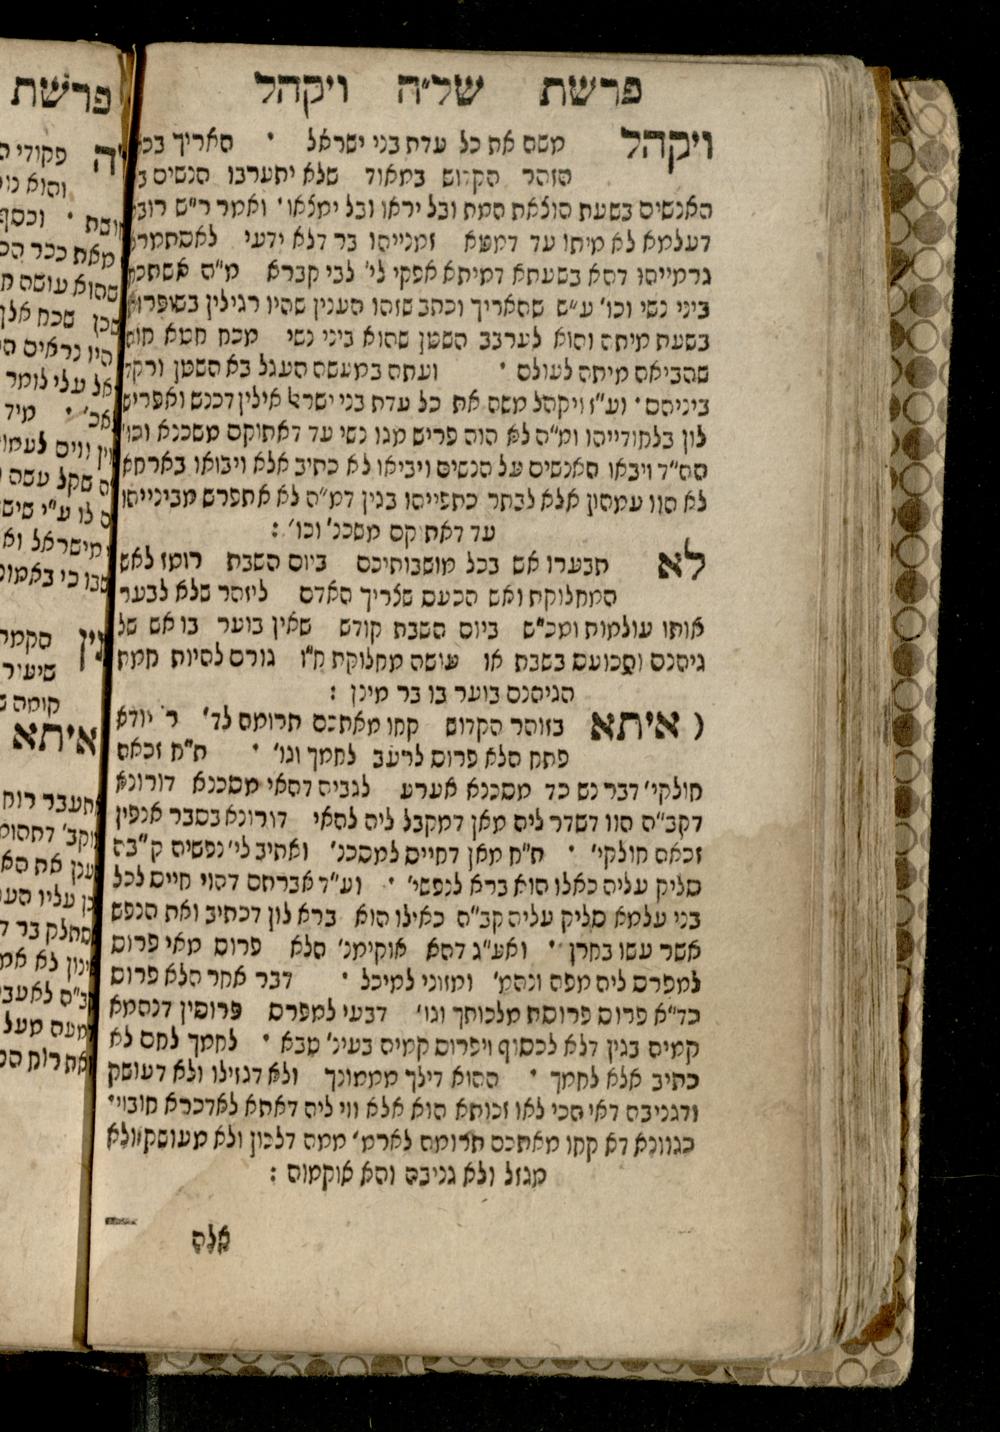 פרשת של״ה ויקהל
ויקהל משה את כל עדת בני ישראל · האריך בכל
הזהר הקדוש במאוד שלא יתערבו הנשים
האנשים בשעת הולאת המת ובל יראו ובל ימלאו · ואמר ר״ש רובא
דעלמא לא מיתו עד דמטא זמנייהו בר דלא ידעי לאסתמרא
גרמייהו דהא בשעתא דמיתא אפקי לי׳ לבי קברא מ״ה אשתכח
ביני נשי וכו׳ ע״ש שהאריך וכתב שזהו הענין שהיו רגילין בשופרות
בשעת מיתה והוא לערבב השטן שהוא ביני נשי מכח חטא חוה
שהביאה מיתה לעולם · ועתה במעשה העגל בא השטן ורקד
ביניהם · וע״ז ויקהל משה את כל עדת בני ישראל אילין דכנש ואפריש
לון בלחודייהו ומ״ה לא הוה פריש מגו נשי עד דאתוקם משכנא וכו׳
הה״ד ויבאו האנשים על הנשים ויביאו לא כתיב אלא ויבואו בארחא
לא הוו עמהון אלא לבתר כתפייהו בגין דמ״ה לא אתפרש מבינייהו
עד דאתוקם משכנ׳ וכו׳ :
לא תבערו אש בכל מושבותיכם ביום השבת רומז לאש
המחלוקת ואש הכעס שלריך האדם ליזהר שלא לבער
אותו עולמות ומכ״ש ביום השבת קודש שאין בוער בו אש של
גיהנם והכועס בשבת או עושה מחלוקת ח״ו גורם להיות חמת
הגיהנם בוער בו בר מינן :
( איתא בזוהר הקדוש קחו מאתכם תרומה לד׳ ר׳ יודא
פתח הלא פרוס לרעב לחמך וגו׳ · ת״ח זכאה
חולקי׳ דבר נש כד מסכנא אערע לגביה דהאי מסכנא דורונא
דקב״ה הוו דשדר ליה מאן דמקבל ליה להאי דורונא בסבר אנפין
זכאה חולקי׳ · ת״ח מאן דחייס למסכנ׳ ואתיב לי׳ נפשיה ק״בה
סליק עליה כאלו הוא ברא לנפשי׳ · וע״ד אברהם דהוי חייס לכל
בני עלמא סליק עליה קב״ה כאילו הוא ברא לון דכתיב ואת הנפש
אשר עשו בחרן · ואע״ג דהא אוקימנ׳ הלא פרוס מאי פרוס
למפרס ליה מפה ונהמ׳ ומזוני למיכל · דבר אחר הלא פרוס
כד״א פרוס פרוסת מלכותך וגו׳ דבעי למפרס פרוסין דנהמא
קמיה בגין דלא לכסוף ויפרוס קמיה בעינ׳ טבא · לחמך לחם לא
כתיב אלא לחמך · ההוא דילך מממונך ולא דגזילו ולא דעושק
ודגניבה דאי הכי לאו זכותא הוא אלא ווי ליה דאתא לאדכרא חובוי׳
כגוונא דא קחו מאתכם תרומה לארמ׳ ממה דלכון ולא מעושק ולא
מגזל ולא גניבה והא אוקמוה :
אלה
פרשת
פקודי
והוא
וכסף
מאת ככר
שהוא עושה
שכח אלף
היו נראים
עלי לומר
מיד
ווים
שקל עשה
לו ע״י
מישראל
כי באמונה
הקמת
שיעור
קומה
איתא